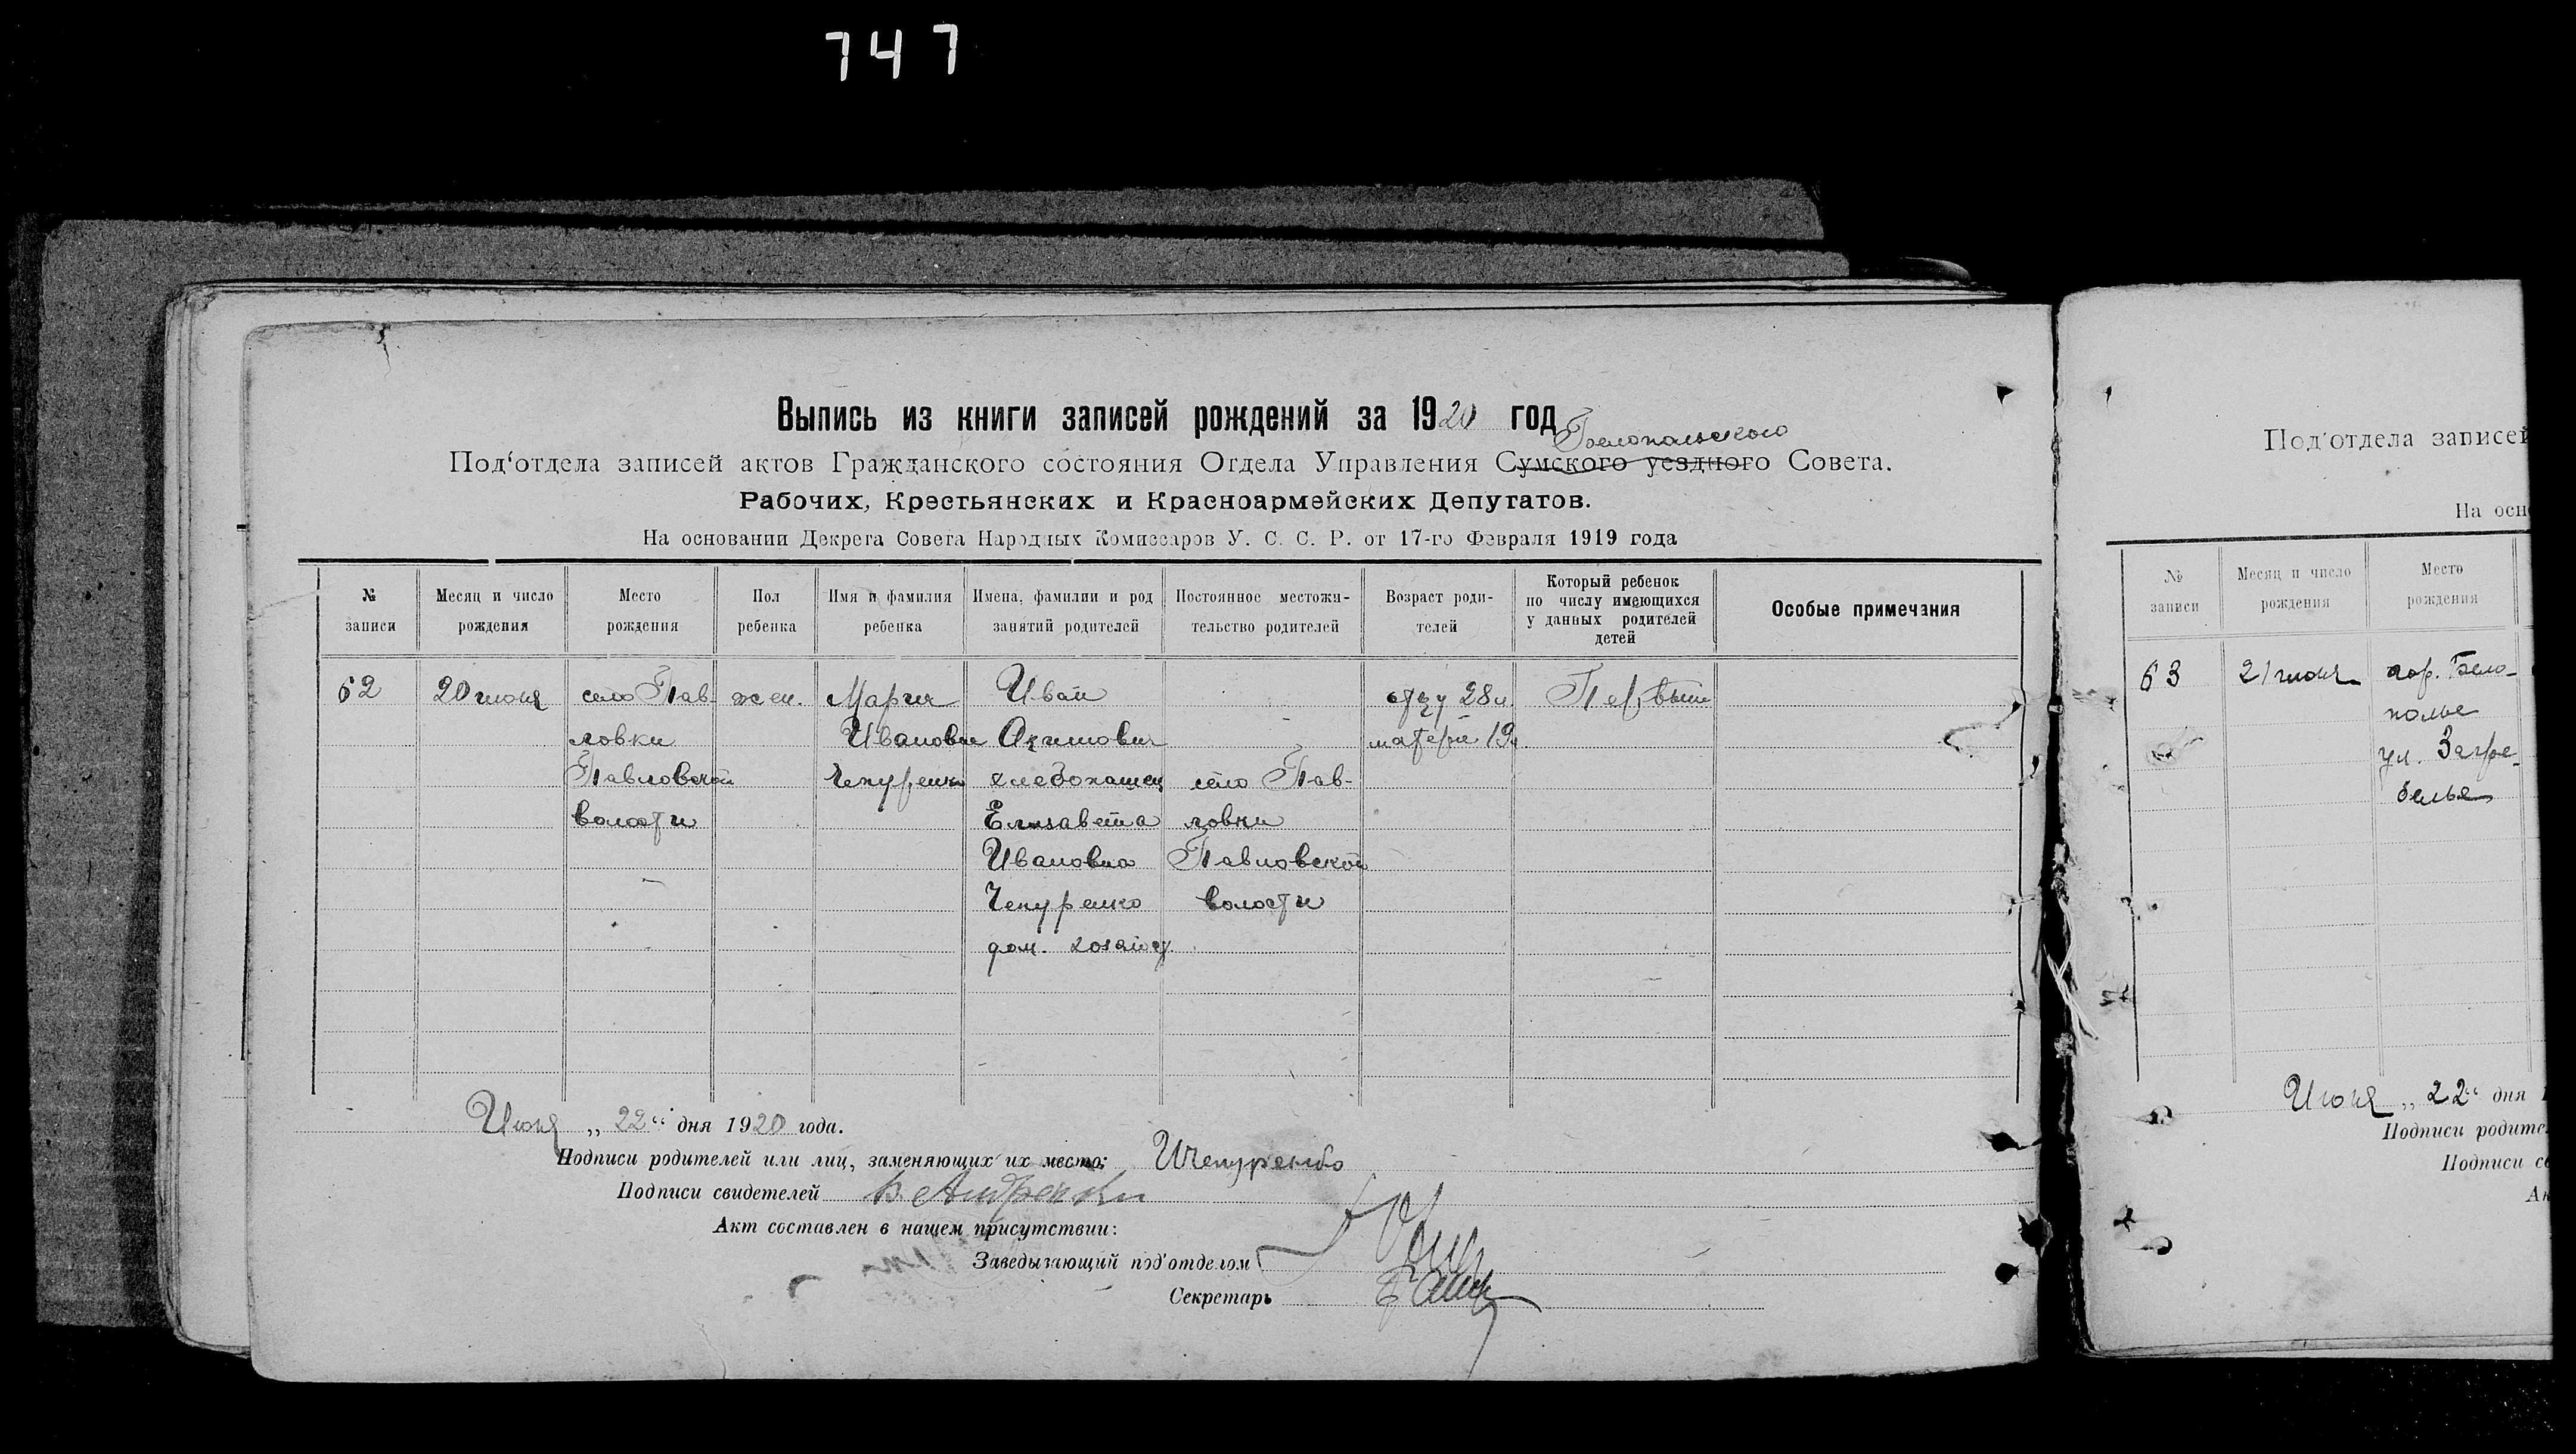 747
Выпись из книги записей рождений за 1920 год
Белопольского
Под'отдела записей актов Гражданского состояния Отдела Управления Сумского уездного Совета.
Рабочих, Крестьянских и Красноармейских Депутатов.
На основании Декрета Совета Народных Комиссаров У. С. С. Р. от 17-го Февраля 1919 года
№ записи
Месяц и число рождения
Место рождения
Пол ребенка
Имя и фамилия ребенка
Имена, фамилии и род занятий родителей
Постоянное местожительство родителей
Возраст родителей
Который ребенок по числу имеющихся у данных родителей детей
Особые примечания
62
20 июня
село Пав-
ловки
Павловской
волости
жен.
Мария
Ивановна
Чепуренко
Иван
Акимович
хлебопашец
Елизавета
Ивановна
Чепуренко
дом. хозяйс
село Пав-
ловки
Павловской
волости
отцу 28 л
матери 19 л.
Первый
Июня „ 22 “ дня 1920 года.
Подписи родителей или лиц, заменяющих их место: ИЧепуренко
Подписи свидетелей
Акт составлен в нашем присутствии:
Заведывающий под'отделом
Секретарь
Под'отдела записей
На осн
№ записи
Месяц и число рождения
Место рождения
63
21 июня
гор. Бело-
полье
ул. Загре-
белье
Июня „ 22 “ дня 1
Подписи родите
Подписи св
Ак